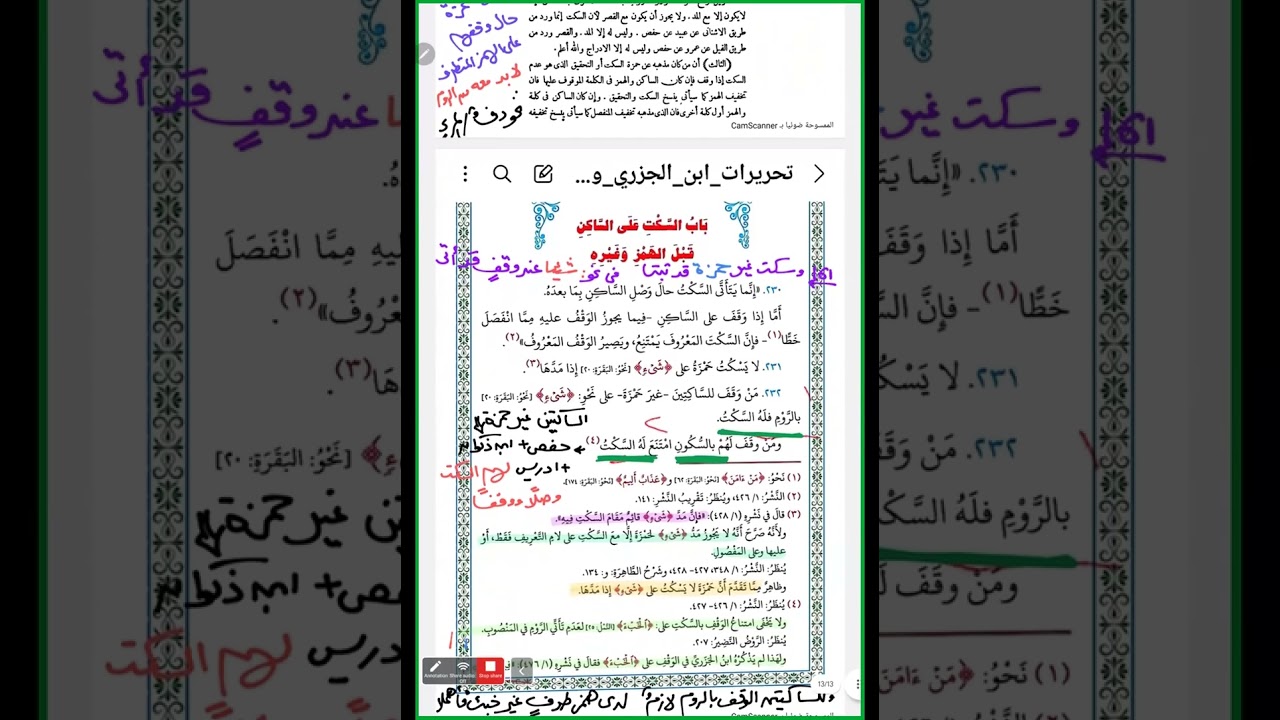 لايكون إلا مع المد . ولا يجوز أن يكون مع القصر لأن السكت إنما ورد من
طريق الاشناني عن عبيد عن حفص . وليس له إلا المد . والقصر ورد من
طريق الفيل عن عمرو عن حفص وليس له إلا الادراج والله أعلم .
(الثالث) أن من كان مذهبه عن حمزة السكت أو التحقيق الذي هو عدم
السكت إذا وقف فإن كان الساكن والهمز في الكلمة الموقوف عليها فان
تخفيف الهمز كما سيأتي ينسخ السكت والتحقيق . وإن كان الساكن في كلة
والهمز أول كلة أخرى فان الذى مذهبه تخفيف المنفصل كما سيأتي ينسخ تخفيفه
حال وقفهم
على الهمز المتطرف
لا بد معه من الروم
الممسوحة ضوئيا بـ CamScanner
تحريرات_ابن_الجزري_و...
بَابُ السَّكْتِ عَلَى السَّاكِنِ
قَبْلَ الهَمْزِ وَغَيْرِهِ
وسكت غير حمزة قد ثبتا في نحو شيء عند وقف قد أتى
٢٣٠. «إِنَّما يَتَأَتَّى السَّكْتُ حالَ وَصْلِ السَّاكِنِ بِمَا بعدَهُ.
أَمَّا إذا وَقَفَ على السَّاكِنِ -فِيما يجوزُ الوَقْفُ عليهِ مِمَّا انْفَصَلَ
خَطًّا(١)- فإنَّ السَّكْتَ المَعْرُوفَ يَمْتَنِعُ، ويَصِيرُ الوَقْفُ المَعْرُوفُ»(٢).
٢٣١. لا يَسْكُتُ حَمْزَةُ على ﴿شَىْءٍ﴾ [نَحْوُ: البَقَرَةِ: ٢٠] إذا مَدَّهَا(٣).
٢٣٢. مَنْ وَقَفَ للسَّاكِتِينَ -غيرَ حَمْزَةَ- على نَحْوِ: ﴿شَىْءٍ﴾ [نَحْوُ: البَقَرَةِ: ٢٠]
بالرَّوْمِ فلَهُ السَّكْتُ.
ومَنْ وقَفَ لَهُمْ بالسُّكُونِ امْتَنَعَ لَهُ السَّكْتُ(٤)
الساكتين غير حمزة
حفص + ابن ذكوان
+ ادريس لهم السكت
وصلًا ووقفًا
(١) نَحْوُ: ﴿مَنْ ءَامَنَ﴾ [نَحْوُ: البَقَرَةِ: ٦٢] و﴿عَذَابٌ أَلِيمٌ﴾ [نَحْوُ: البَقَرَةِ: ١٧٤].
(٢) النَّشْرُ: ١/ ٤٢٦، ويُنظَرُ: تَقْرِيبُ النَّشْرِ: ١٤١.
(٣) قالَ في نَشْرِهِ (١/ ٤٢٨): «فإنَّ مَدَّ ﴿شَىْءٍ﴾ قائِمٌ مَقَامَ السَّكْتِ فِيهِ».
ولأَنَّهُ صَرَّحَ أَنَّهُ لا يَجُوزُ مَدُّ ﴿شَىْءٍ﴾ لحَمْزَةَ إلَّا معَ السَّكْتِ على لامِ التَّعْرِيفِ فَقَطْ، أَوْ
عليها وعلى المَفْصُولِ.
يُنظَرُ: النَّشْرُ: ١/ ٣٤٨، ٤٢٧- ٤٢٨، وشَرْحُ الطَّاهِرَةِ: و: ١٣٤.
وظاهِرٌ مِمَّا تَقَدَّمَ أَنَّ حَمْزَةَ لا يَسْكُتُ على ﴿شَىْءٍ﴾ إذا مَدَّهَا.
(٤) يُنظَرُ: النَّشْرُ: ١/ ٤٢٦- ٤٢٧.
ولا يَخْفَى امتناعُ الوَقْفِ بالسَّكْتِ على: ﴿ٱلْخَبْءَ﴾ [النَّمْلِ: ٢٥] لعَدَمِ تَأَتِّي الرَّوْمِ في المَنْصُوبِ.
يُنظَرُ: الرَّوْضُ النَّضِيرُ: ٢٠٧.
ولهَذَا لم يَذْكُرْهُ ابنُ الجَزَرِيِّ في الوَقْفِ على ﴿ٱلْخَبْءَ﴾ فقالَ في نَشْرِهِ (١/ ٤٧٦):
Annotation
Share audio
Off
Stop share
13/13
وللساكتين الوقف بالروم لازم لدى همز طرف غير
CamScanner